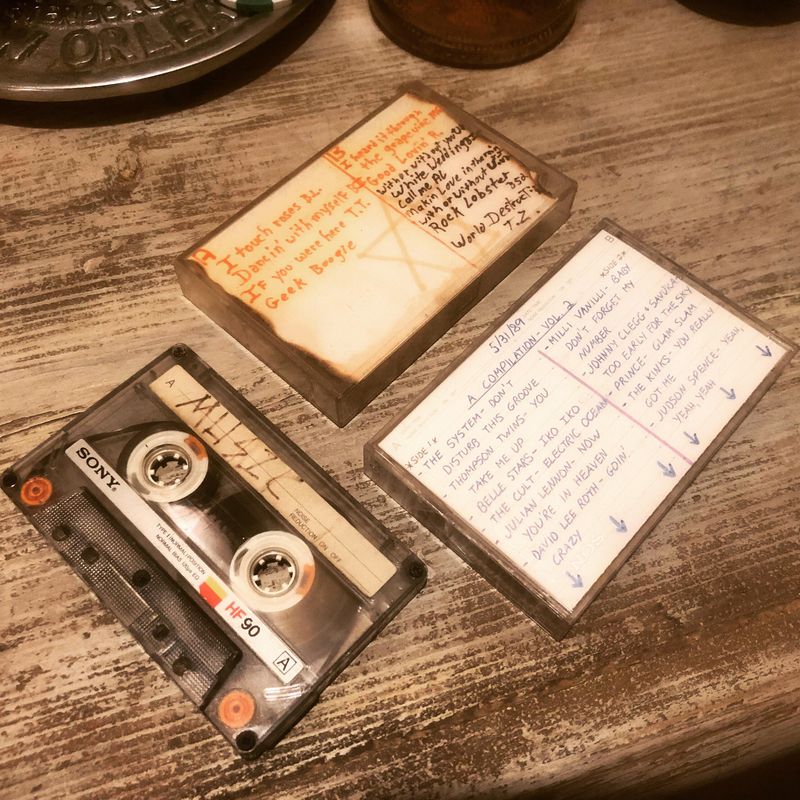 ORLEA
A
I touch roses D.L.
Dancin' with myself B.I.
If you were here T.T.
Geek Boogie
B
I heard it through
the grapevine
Good Lovin' R.
with or without you U2
White Wedding
Call me AL
makin Love in the rain
with or without
Rock Lobster B52
World Destruction
T-Z
5/31/89
A COMPILATION - VOL. 2
*SIDE 1*
- THE SYSTEM - DON'T
DISTURB THIS GROOVE
- THOMPSON TWINS - YOU
TAKE ME UP
- BELLE STARS - IKO IKO
- THE CULT - ELECTRIC OCEAN
- JULIAN LENNON - NOW
YOU'RE IN HEAVEN
- DAVID LEE ROTH - GOIN'
CRAZY
B
*SIDE 2*
- MILLI VANILLI - BABY
DON'T FORGET MY
NUMBER
- JOHNNY CLEGG & SAVUKA
TOO EARLY FOR THE SKY
- PRINCE - GLAM SLAM
- THE KINKS - YOU REALLY
GOT ME
- JUDSON SPENCE - YEAH,
YEAH, YEAH
A
MUSIC
NOISE
REDUCTION ON OFF
SONY
TYPE I (NORMAL) POSITION
NORMAL BIAS 120μs EQ
HF 90
A